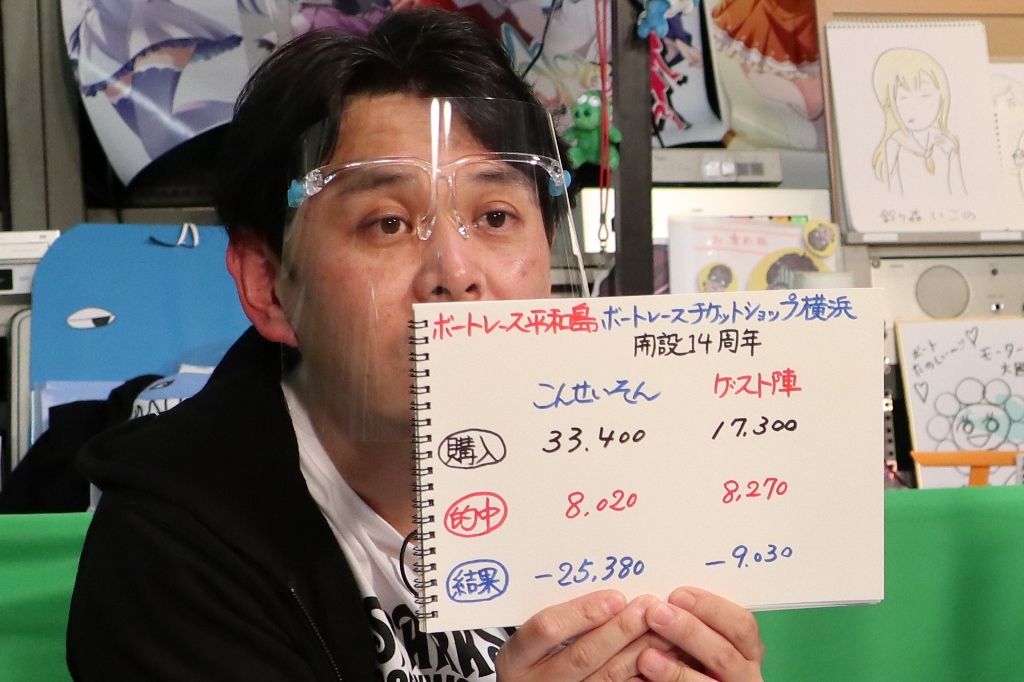 ボートレース平和島 ボートレースチケットショップ横浜
開設14周年
こんせいそん ゲスト陣
購入 33.400 17.300
的中 8.020 8,270
結果 -25.380 -9.030
ボート
たのしぃーッ!
モーター